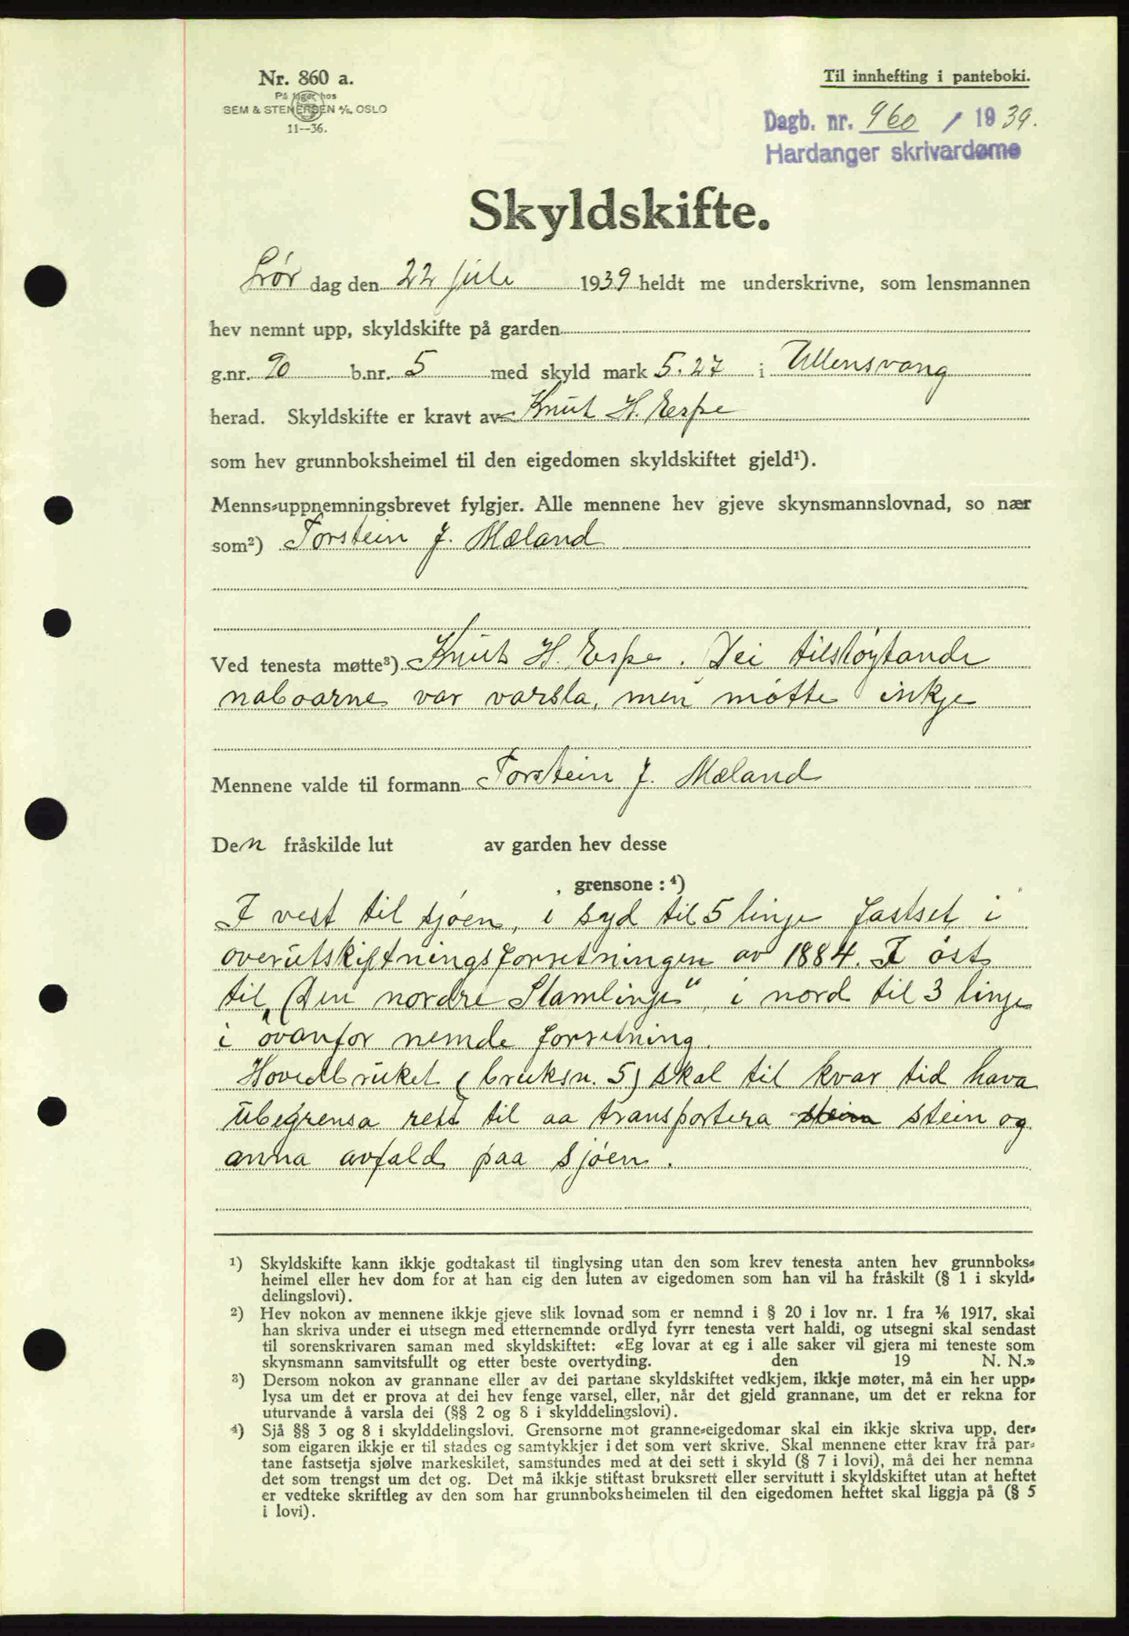 Nr. 860 a.
På lager hos
SEM & STENERSEN A/S, OSLO
11--36.
Til innhefting i panteboki.
Dagb. nr. 960 / 1939.
Hardanger skrivardøme
Skyldskifte.
Lør dag den 22 juli 1939 heldt me underskrivne, som lensmannen
hev nemnt upp, skyldskifte på garden
g.nr. 90 b.nr. 5 med skyld mark 5.27 i Ullensvang
herad. Skyldskifte er kravt av Knut H. Espe
som hev grunnboksheimel til den eigedomen skyldskiftet gjeld¹).
Menns-uppnemningsbrevet fylgjer. Alle mennene hev gjeve skynsmannslovnad, so nær
som²) Torstein J. Mæland
Ved tenesta møtte³) Knut H. Espe. Dei tilstøytande
naboarne var varsla, men møtte inkje
Mennene valde til formann Torstein J. Mæland
Den fråskilde lut av garden hev desse
grensone : ⁴)
I vest til sjøen, i syd til 5 linje fastset i
overutskiftningsforretningen av 1884. I øst
til „(den nordre Stamlinje“ i nord til 3 linje
i ovanfor nemde forretning.
Hovedbruket (bruksn. 5) skal til kvar tid hava
ubegrensa rett til aa transportera stein stein og
anna avfald paa sjøen.
¹) Skyldskifte kann ikkje godtakast til tinglysing utan den som krev tenesta anten hev grunnboks-
heimel eller hev dom for at han eig den luten av eigedomen som han vil ha fråskilt (§ 1 i skyld-
delingslovi).
²) Hev nokon av mennene ikkje gjeve slik lovnad som er nemnd i § 20 i lov nr. 1 fra ⅙ 1917, skal
han skriva under ei utsegn med etternemnde ordlyd fyrr tenesta vert haldi, og utsegni skal sendast
til sorenskrivaren saman med skyldskiftet: «Eg lovar at eg i alle saker vil gjera mi teneste som
skynsmann samvitsfullt og etter beste overtyding. den 19 N. N.»
³) Dersom nokon av grannane eller av dei partane skyldskiftet vedkjem, ikkje møter, må ein her upp-
lysa um det er prova at dei hev fenge varsel, eller, når det gjeld grannane, um det er rekna for
uturvande å varsla dei (§§ 2 og 8 i skylddelingslovi).
⁴) Sjå §§ 3 og 8 i skylddelingslovi. Grensorne mot granne-eigedomar skal ein ikkje skriva upp, der-
som eigaren ikkje er til stades og samtykkjer i det som vert skrive. Skal mennene etter krav frå par-
tane fastsetja sjølve markeskilet, samstundes med at dei sett i skyld (§ 7 i lovi), må dei her nemna
det som trengst um det og. Det må ikkje stiftast bruksrett eller servitutt i skyldskiftet utan at heftet
er vedteke skriftleg av den som har grunnboksheimelen til den eigedomen heftet skal liggja på (§ 5
i lovi).